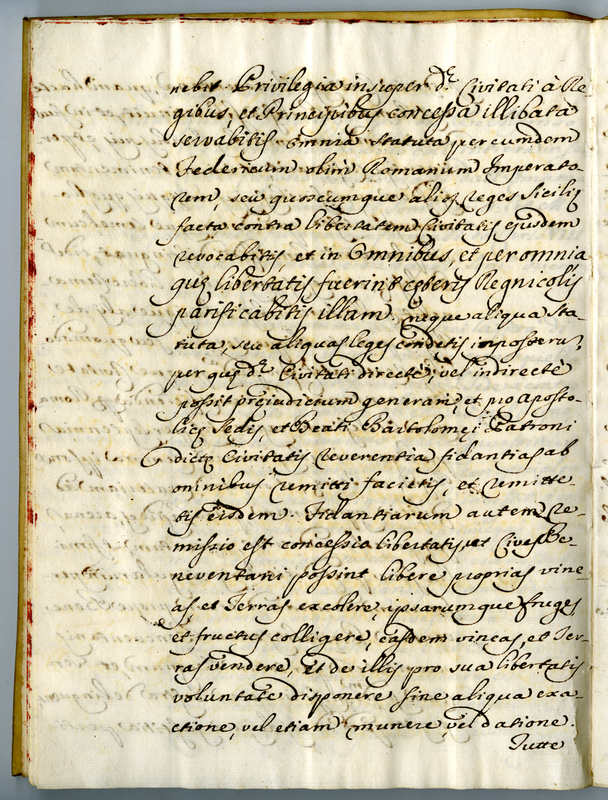 nebit Privilegia insuper d.ᵉ Civitati à Re
gibus, et Principibus concessa illibata
servabitis omnia statuta per eumdem
Federicum olim Romanum Imperato-
rem, seu quoscumque alios Reges Sicilię
facta contra libertatem Civitatis ejusdem
revocabitis, et in Omnibus, et per omnia
quę libertatis fuerint cęteris Regnicolis
parificabitis illam. neque aliqua sta-
tuta, seu aliquas leges condetis, imposterũ,
per quę d.ᵉ Civitati directè, vel indirectè
possit pręjudicium generari, et pro aposto-
licę Sedis, et Beati Bartolomęi Patroni
dictę Civitatis reverentia fidantias ab
ominibus remitti facietis, et remitte-
tis eisdem. Fidantiarum autem re-
missio est concessio libertatis, ut Cives Be-
neventani possint libere proprias vine
as et Terras excolere, ipsarumque fruges
et fructus colligere, easdem vineas, et Ter-
ras vendere, et de illis pro sua libertatis
voluntate disponere sine aliqua exa-
ctione, vel etiam munere, vel datione.
Tutte